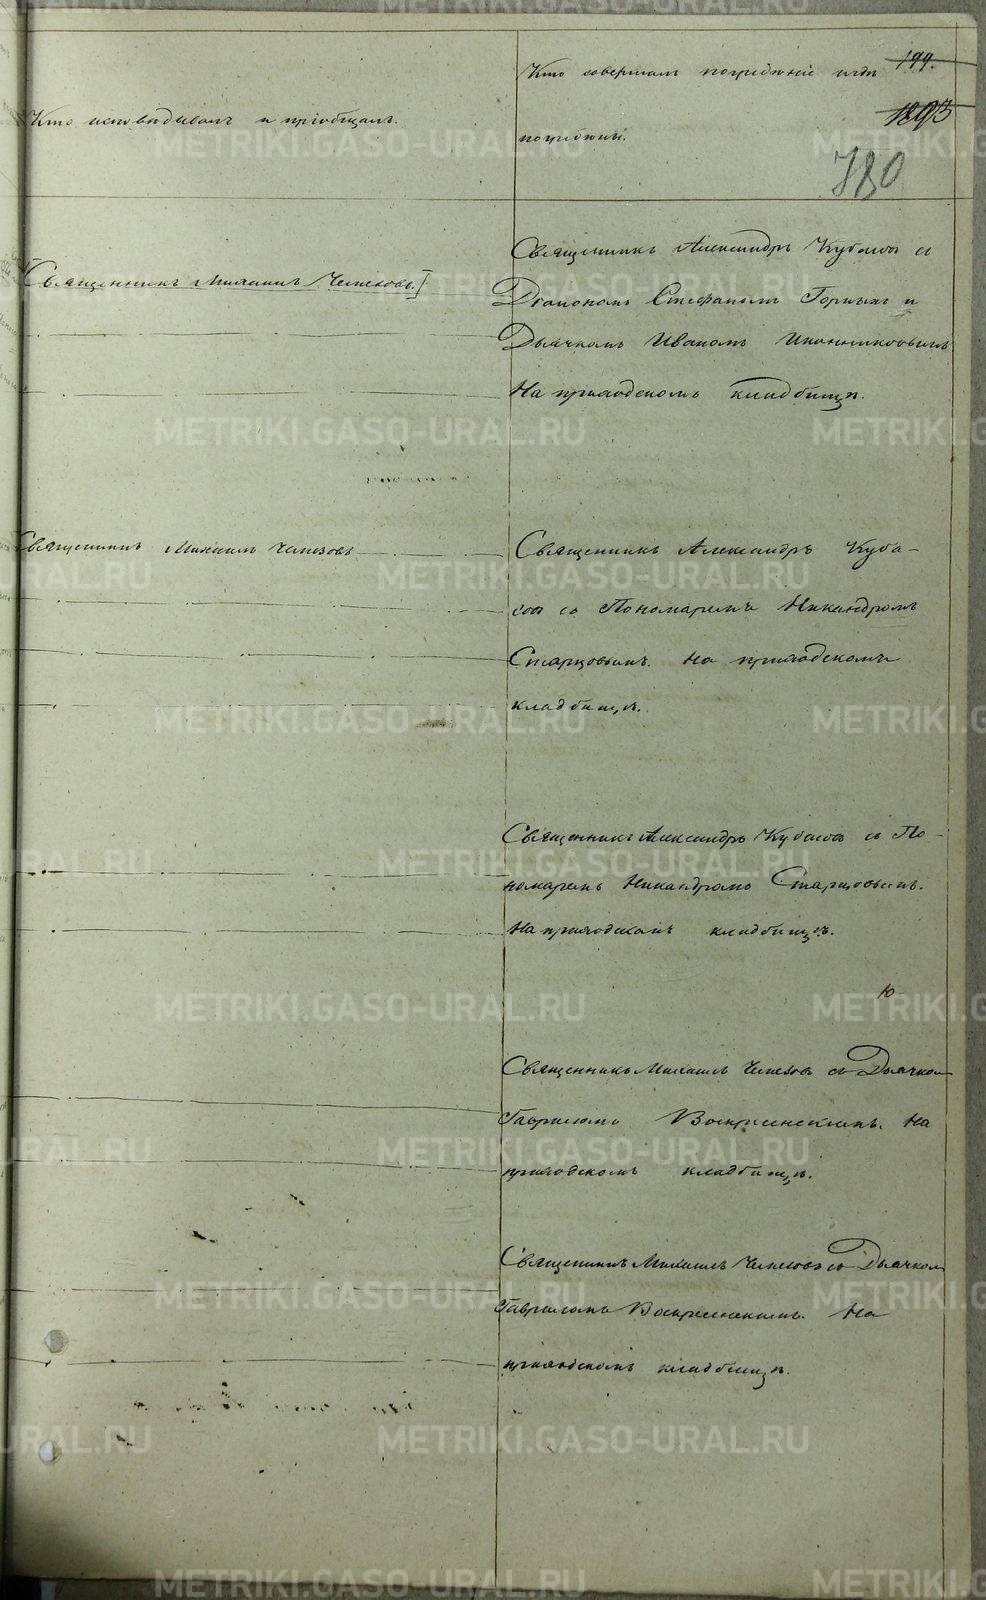 Кто исповѣдывалъ и пріобщалъ.
Кто совершалъ погребеніе и гдѣ
погребены.
199.
1893
780
Священникъ Михаилъ
Священникъ Александръ Кубасов съ
Діакономъ Стефаномъ Горныхъ и
Дьячкомъ Иваномъ Иконниковымъ
На приходскомъ кладбищѣ.
Священникъ Михаилъ
Священникъ Александръ Куба-
сов съ Пономаремъ Никандромъ
Старцовымъ. На приходскомъ
кладбищѣ.
Священникъ Александръ Кубасов съ По-
номаремъ Никандромъ Старцовымъ.
На приходскомъ кладбищѣ.
Священникъ Михаилъ съ Дьячком
Гавриломъ Воскресенскимъ. На
приходскомъ кладбищѣ.
Священникъ Михаилъ съ Дьячком
Гавриломъ Воскресенскимъ. На
приходскомъ кладбищѣ.
METRIKI.GASO-URAL.RU